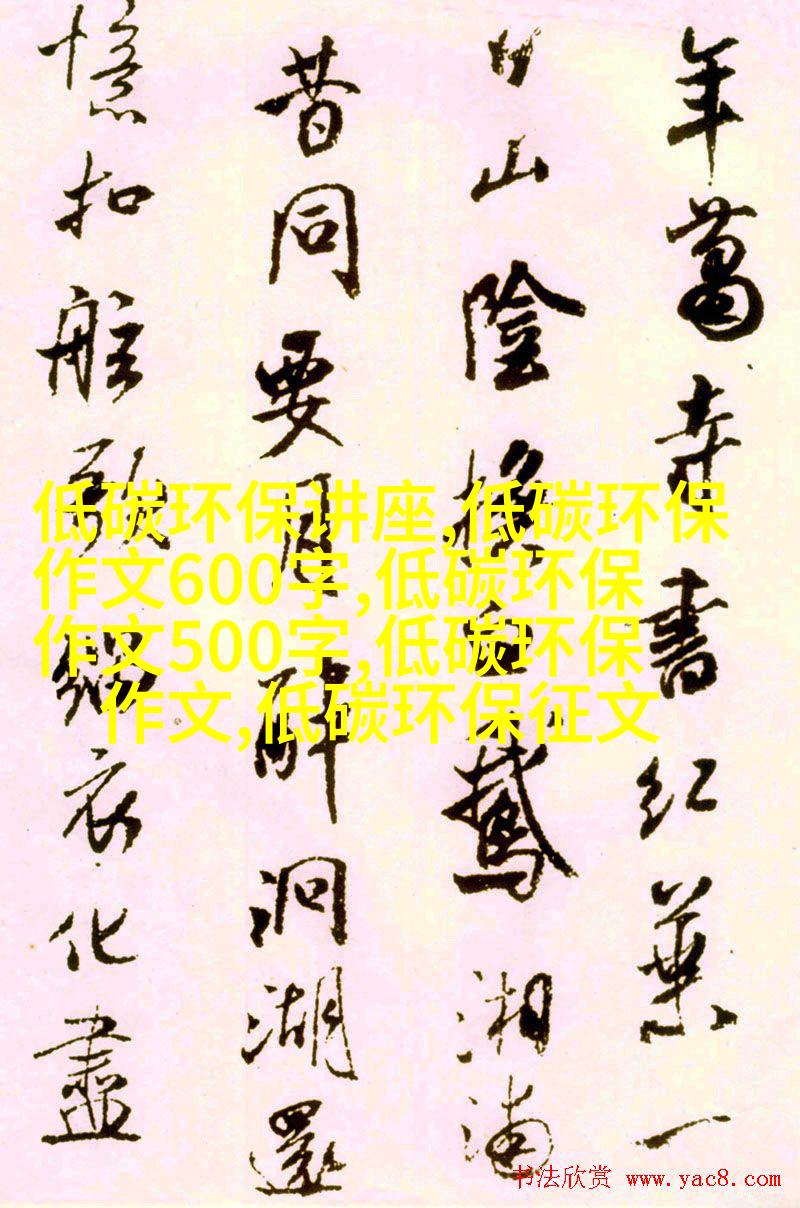 年寺書紅葉一
日山陰換白鵝湘浦
昔同要月醉洞湖還
憶扣舷歌緇衣化盡
低碳环保讲座,低碳环保
作文600字,低碳环保
作文500字,低碳环保
作文,低碳环保征文
书法欣赏 www.yac8.com